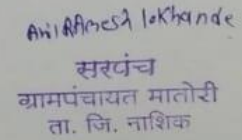 Anil Ramesh lokhande
सरपंच
ग्रामपंचायत मातोरी
ता. जि. नाशिक